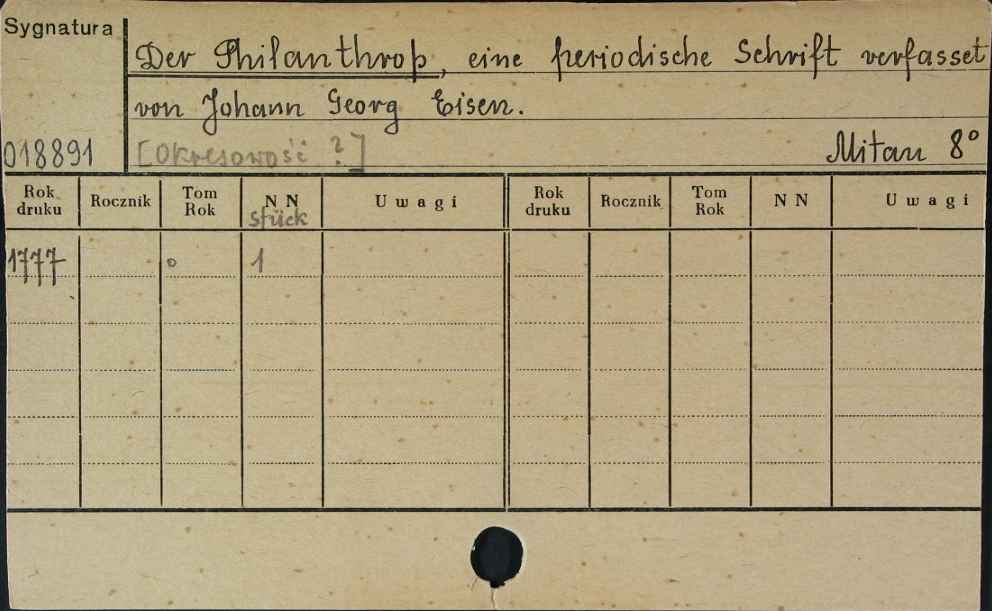 Sygnatura
Der Philanthrop, eine periodische Schrift verfasset
von Johann Georg Eisen.
018891 [Okresowość ?] Mitau 8°
Rok druku Rocznik Tom Rok NN Stück Uwagi Rok druku Rocznik Tom Rok NN Uwagi
1777 o 1